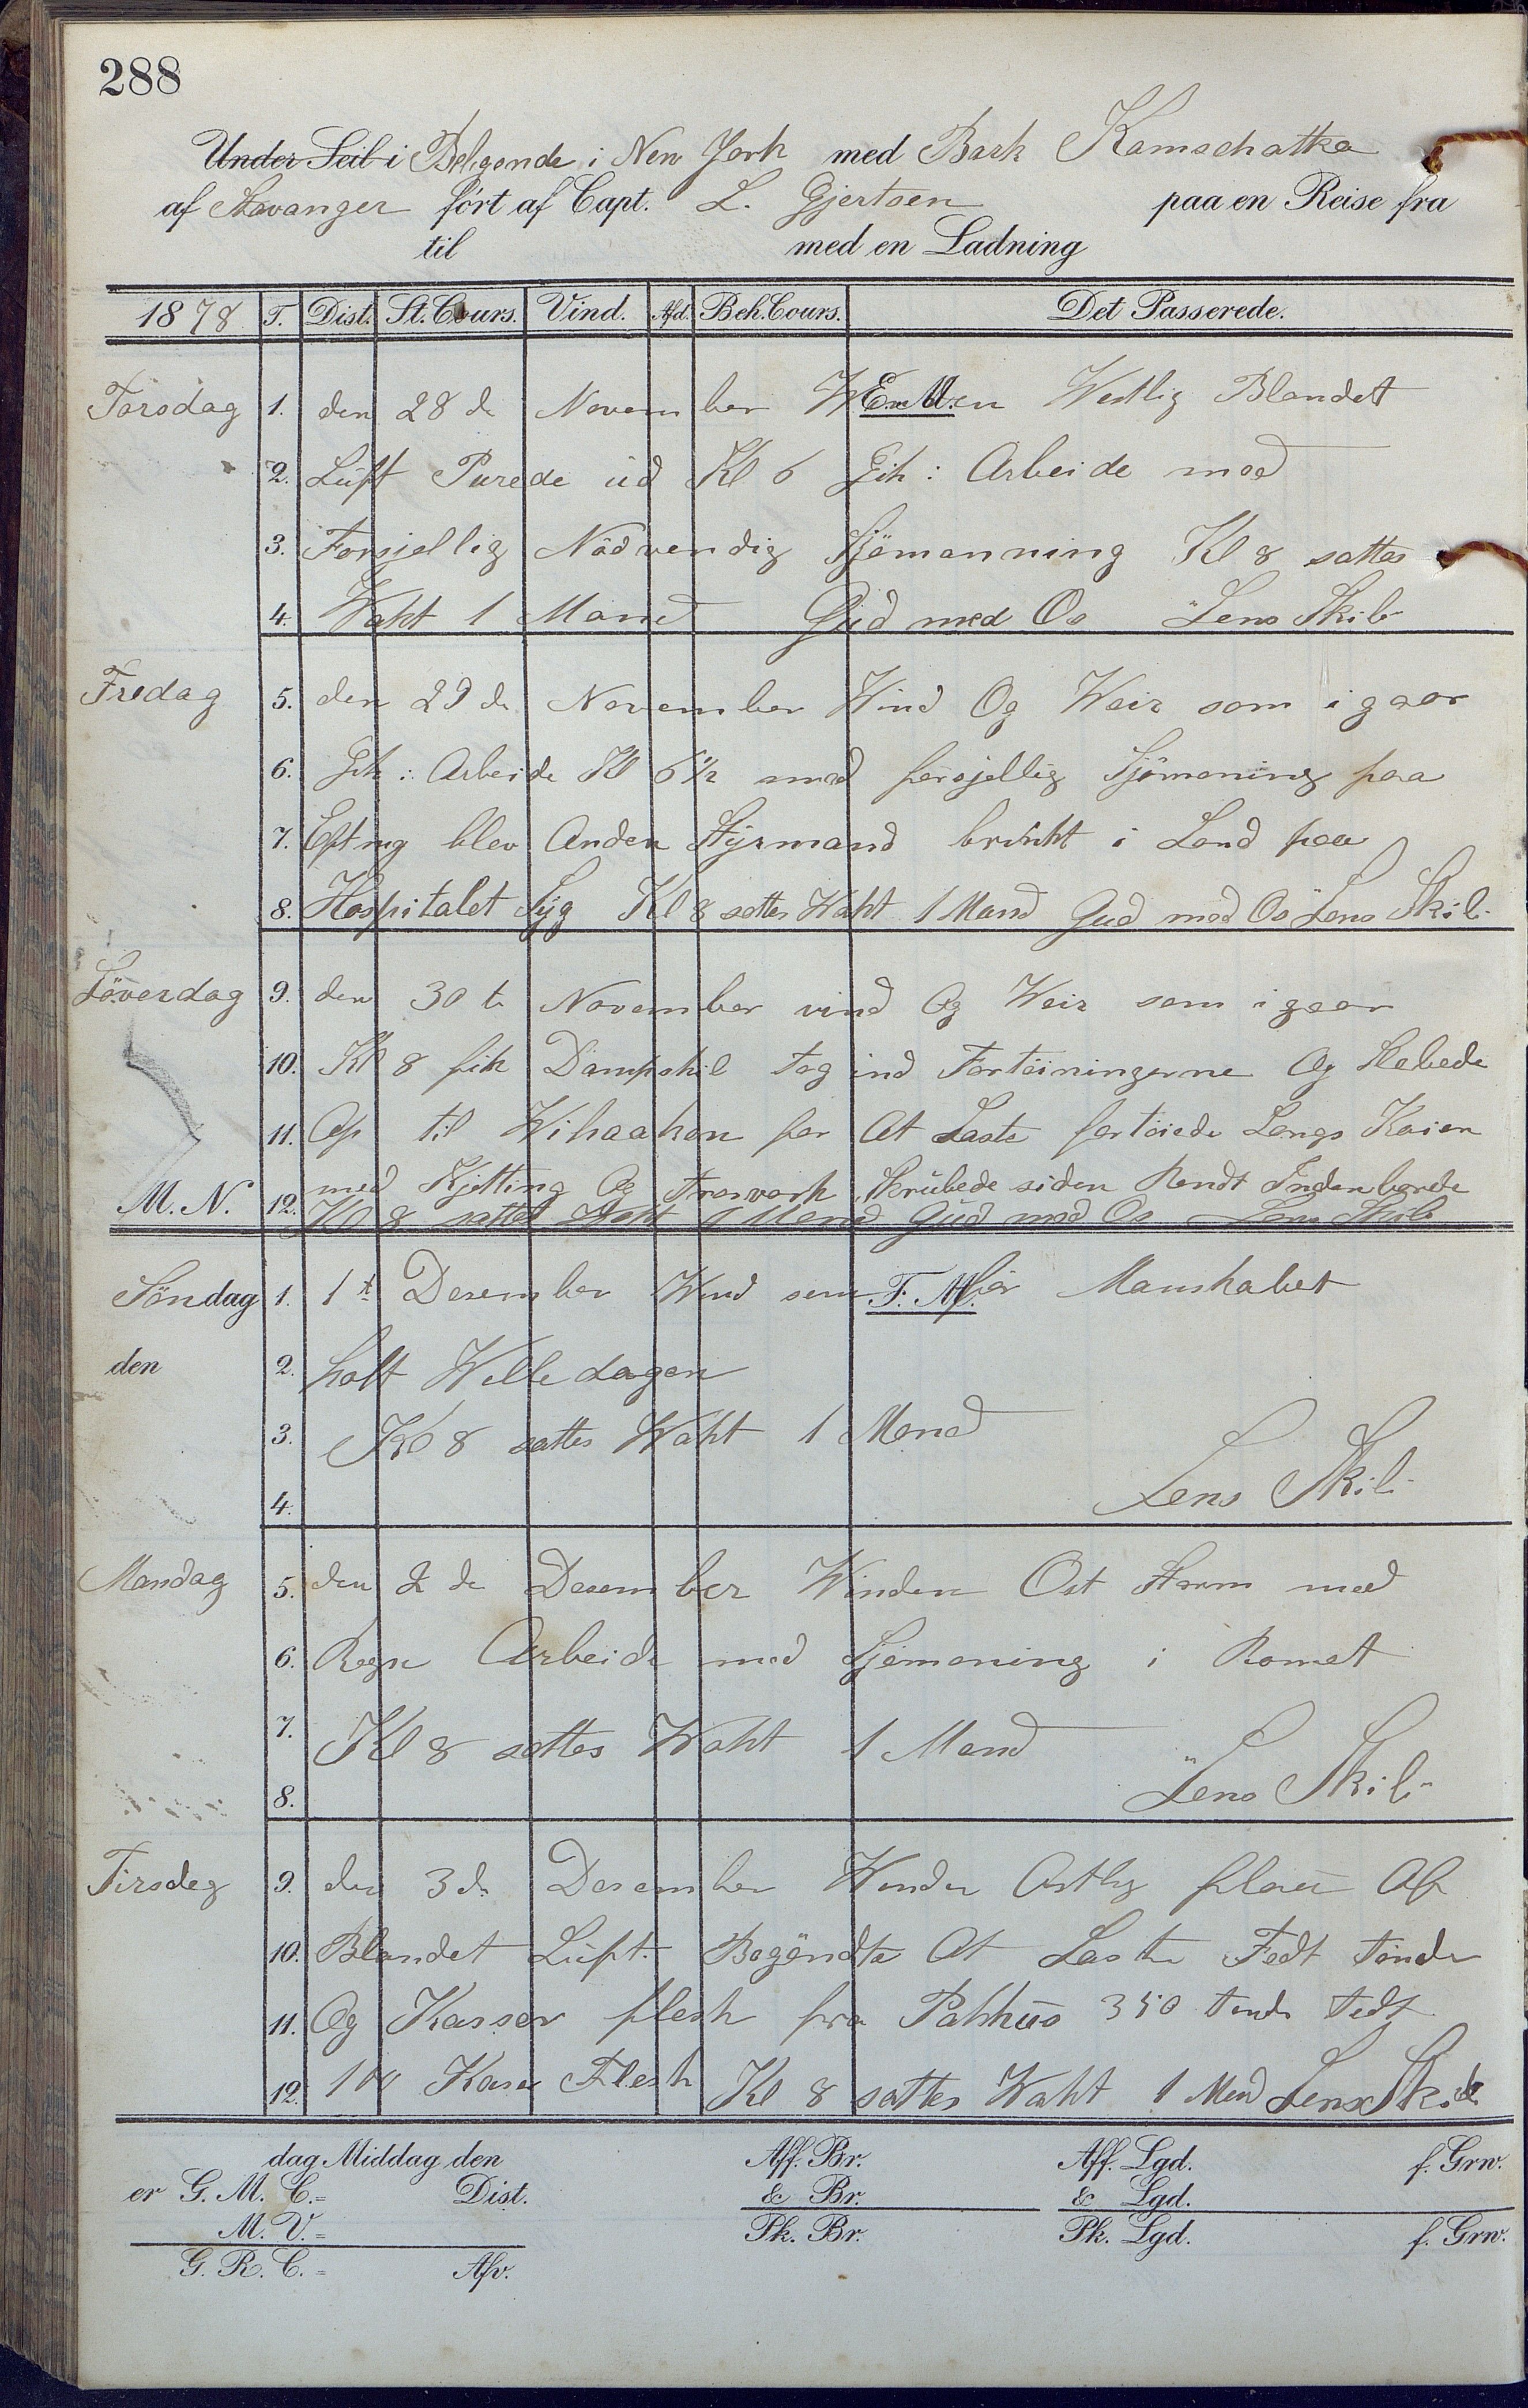 288
Under Seil i Beligende i New York med Bark Kamschatka
af Stavanger ført af Capt. L. Gjertsen paa en Reise fra
til med en Ladning
1878 T. Dist. St. Cours. Vind. Afd. Beh. Cours. Det Passerede.
Torsdag 1. den 28 de November E. M. Westlig Blandet
2. Luft Purede ud Kl 6 Gik: Arbeide med
3. Forsjellig Nödvendig Sjömanning Kl 8 sattes
4. Waht 1 Mand Gud med Os Lens Skib
Fredag 5. den 29 de November Wind Og Weir som i gaar
6. Gik: Arbeide Kl 6 1/2 med forsjellig Sjömaning paa
7. Eftmg blev Anden Styrmand brünkt i Land paa
8. Hospitalet Syg Kl 8 sattes Waht 1 Mand Gud med Os Lens Skib
Löverdag 9. den 30 te November vind Og Weir som i gaar
10. Kl 8 fik Dampskib tog ind Fortöiningerne Og Slebede
11. Op til Wihaaken for At Laste fortöiede Langs Kaien
med Kjetting Og Trosvark Skrübede siden Rendt Indenborde
M. N. 12. Kl 8 sattes Waht 1 Mand Gud med Os Lens Skib
Søndag 1. 1t Desember Wind som F. M. för Manskabet
den 2. holt Hvile dagen
3. Kl 8 sattes Waht 1 Mand
4. Lens Skib
Mandag 5. den 2 de Desember Winden Ost Storm med
6. Regn Arbeide med Sjömaning i Romet
7. Kl 8 sattes Waht 1 Mand
8. Lens Skib
Tirsdag 9. den 3 de Desember Winden Ostlig flau Af
10. Blandet Luft Begöndte At Laste Fedt Tönder
11. Og Kasser flesk fra Pakhüs 350 tönde Fedt
12. 100 Kaser Flesk Kl 8 sattes Waht 1 Mand Lens Skib
dag Middag den Aff. Br. Aff. Lgd. f. Grw.
er G. M. C.= Dist. & Br. & Lgd.
M. V.= Pk. Br. Pk. Lgd. f. Grw.
G. R. C.= Afv.